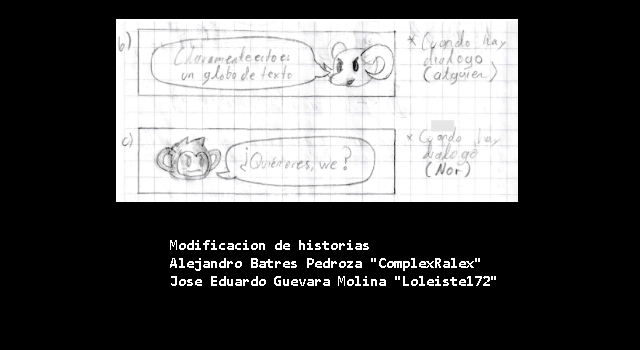 b)
Claramente esto es
un globo de texto
* Cuando hay
dialogo
(alguien)
c)
¿Quién eres, we?
* Cuando hay
dialogo
(Nor)
Modificacion de historias
Alejandro Batres Pedroza "ComplexRalex"
Jose Eduardo Guevara Molina "Loleiste172"